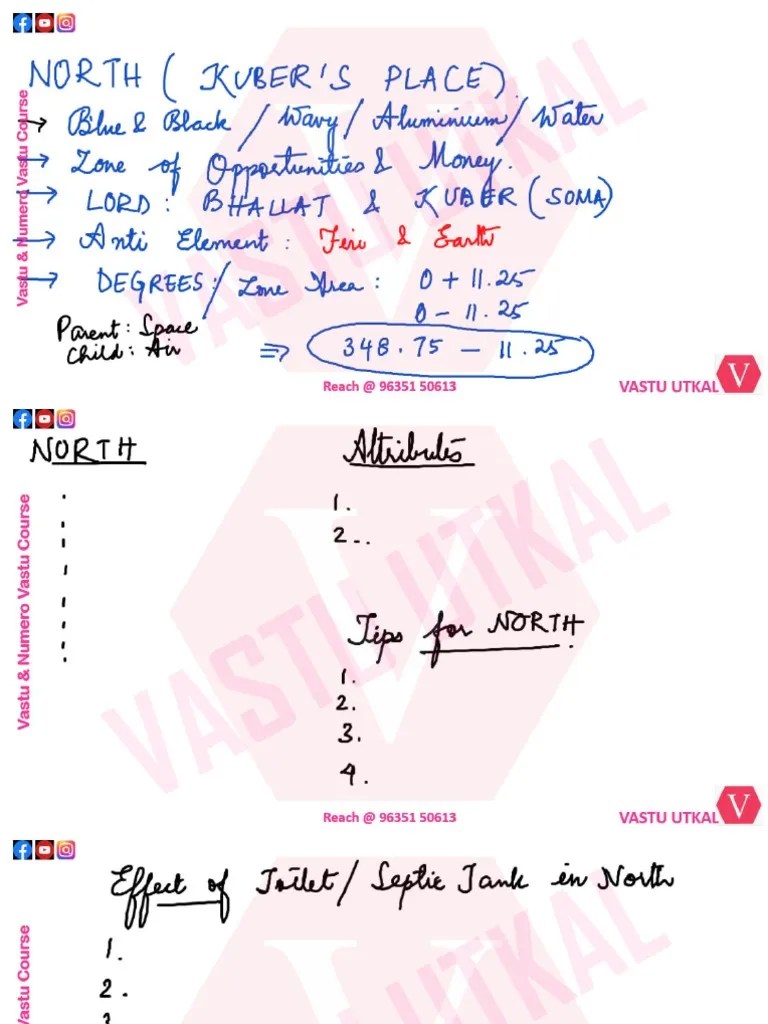 NORTH ( KUBER'S PLACE)
→ Blue & Black / Wavy / Aluminium / Water
→ Zone of Opportunities & Money.
→ LORD: BHALLAT & KUBER (SOMA)
→ Anti Element: Fire & Earth
→ DEGREES:/ Zone Area: 0 + 11.25
0 - 11.25
Parent: Space
Child: Air
⇒ 348.75 — 11.25
Vastu & Numero Vastu Course
VASTU UTKAL
Reach @ 96351 50613
VASTU UTKAL V
NORTH
Attributes
1.
2..
Tips for NORTH
1.
2.
3.
4.
Vastu & Numero Vastu Course
VASTU UTKAL
Reach @ 96351 50613
VASTU UTKAL V
Effect of Toilet/ Septic Tank in North
1.
2.
3
Vastu Course
UTKAL